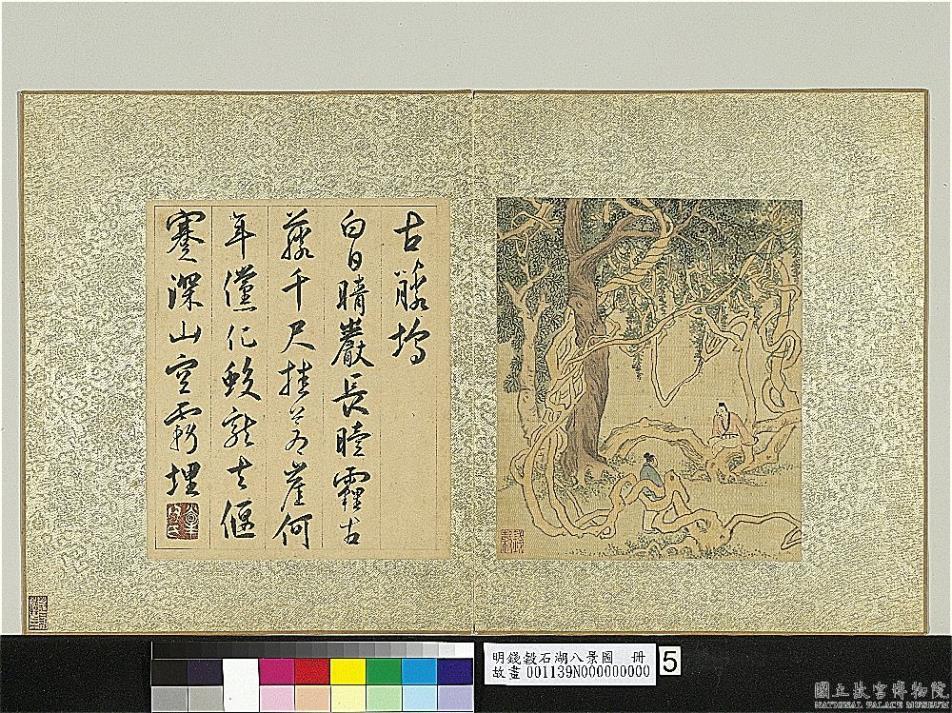 古藤塢
白日晴巖長曀霾古
藤千尺挂蒼崖何
年儻化蛟龍去偃
蹇深山空霧埋
明錢穀石湖八景圖　冊
故畫 001139N000000000
5
國立故宮博物院
NATIONAL PALACE MUSEUM